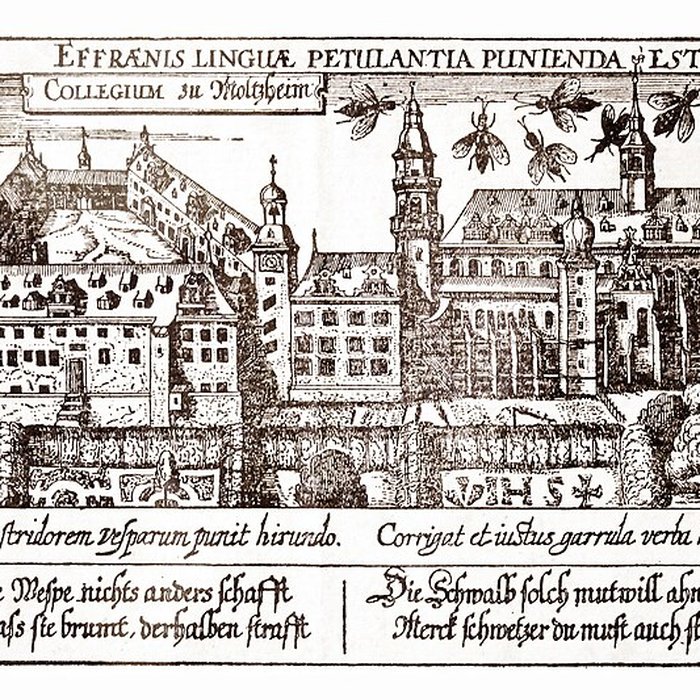 EFFRÆNIS LINGUÆ PETULANTIA PUNIENDA EST
COLLEGIUM zu Moltzheim
IHS
stridorem vesparum punit hirundo. Corrigat et iustus garrula verba
Wespe nichts anders schafft
sie brumt, derhalben strafft
Die Schwalb solch mutwill
Merck schwetzer du must auch